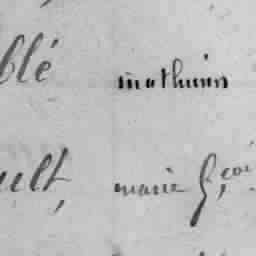 blé mathurin
ult, marie f.çoi